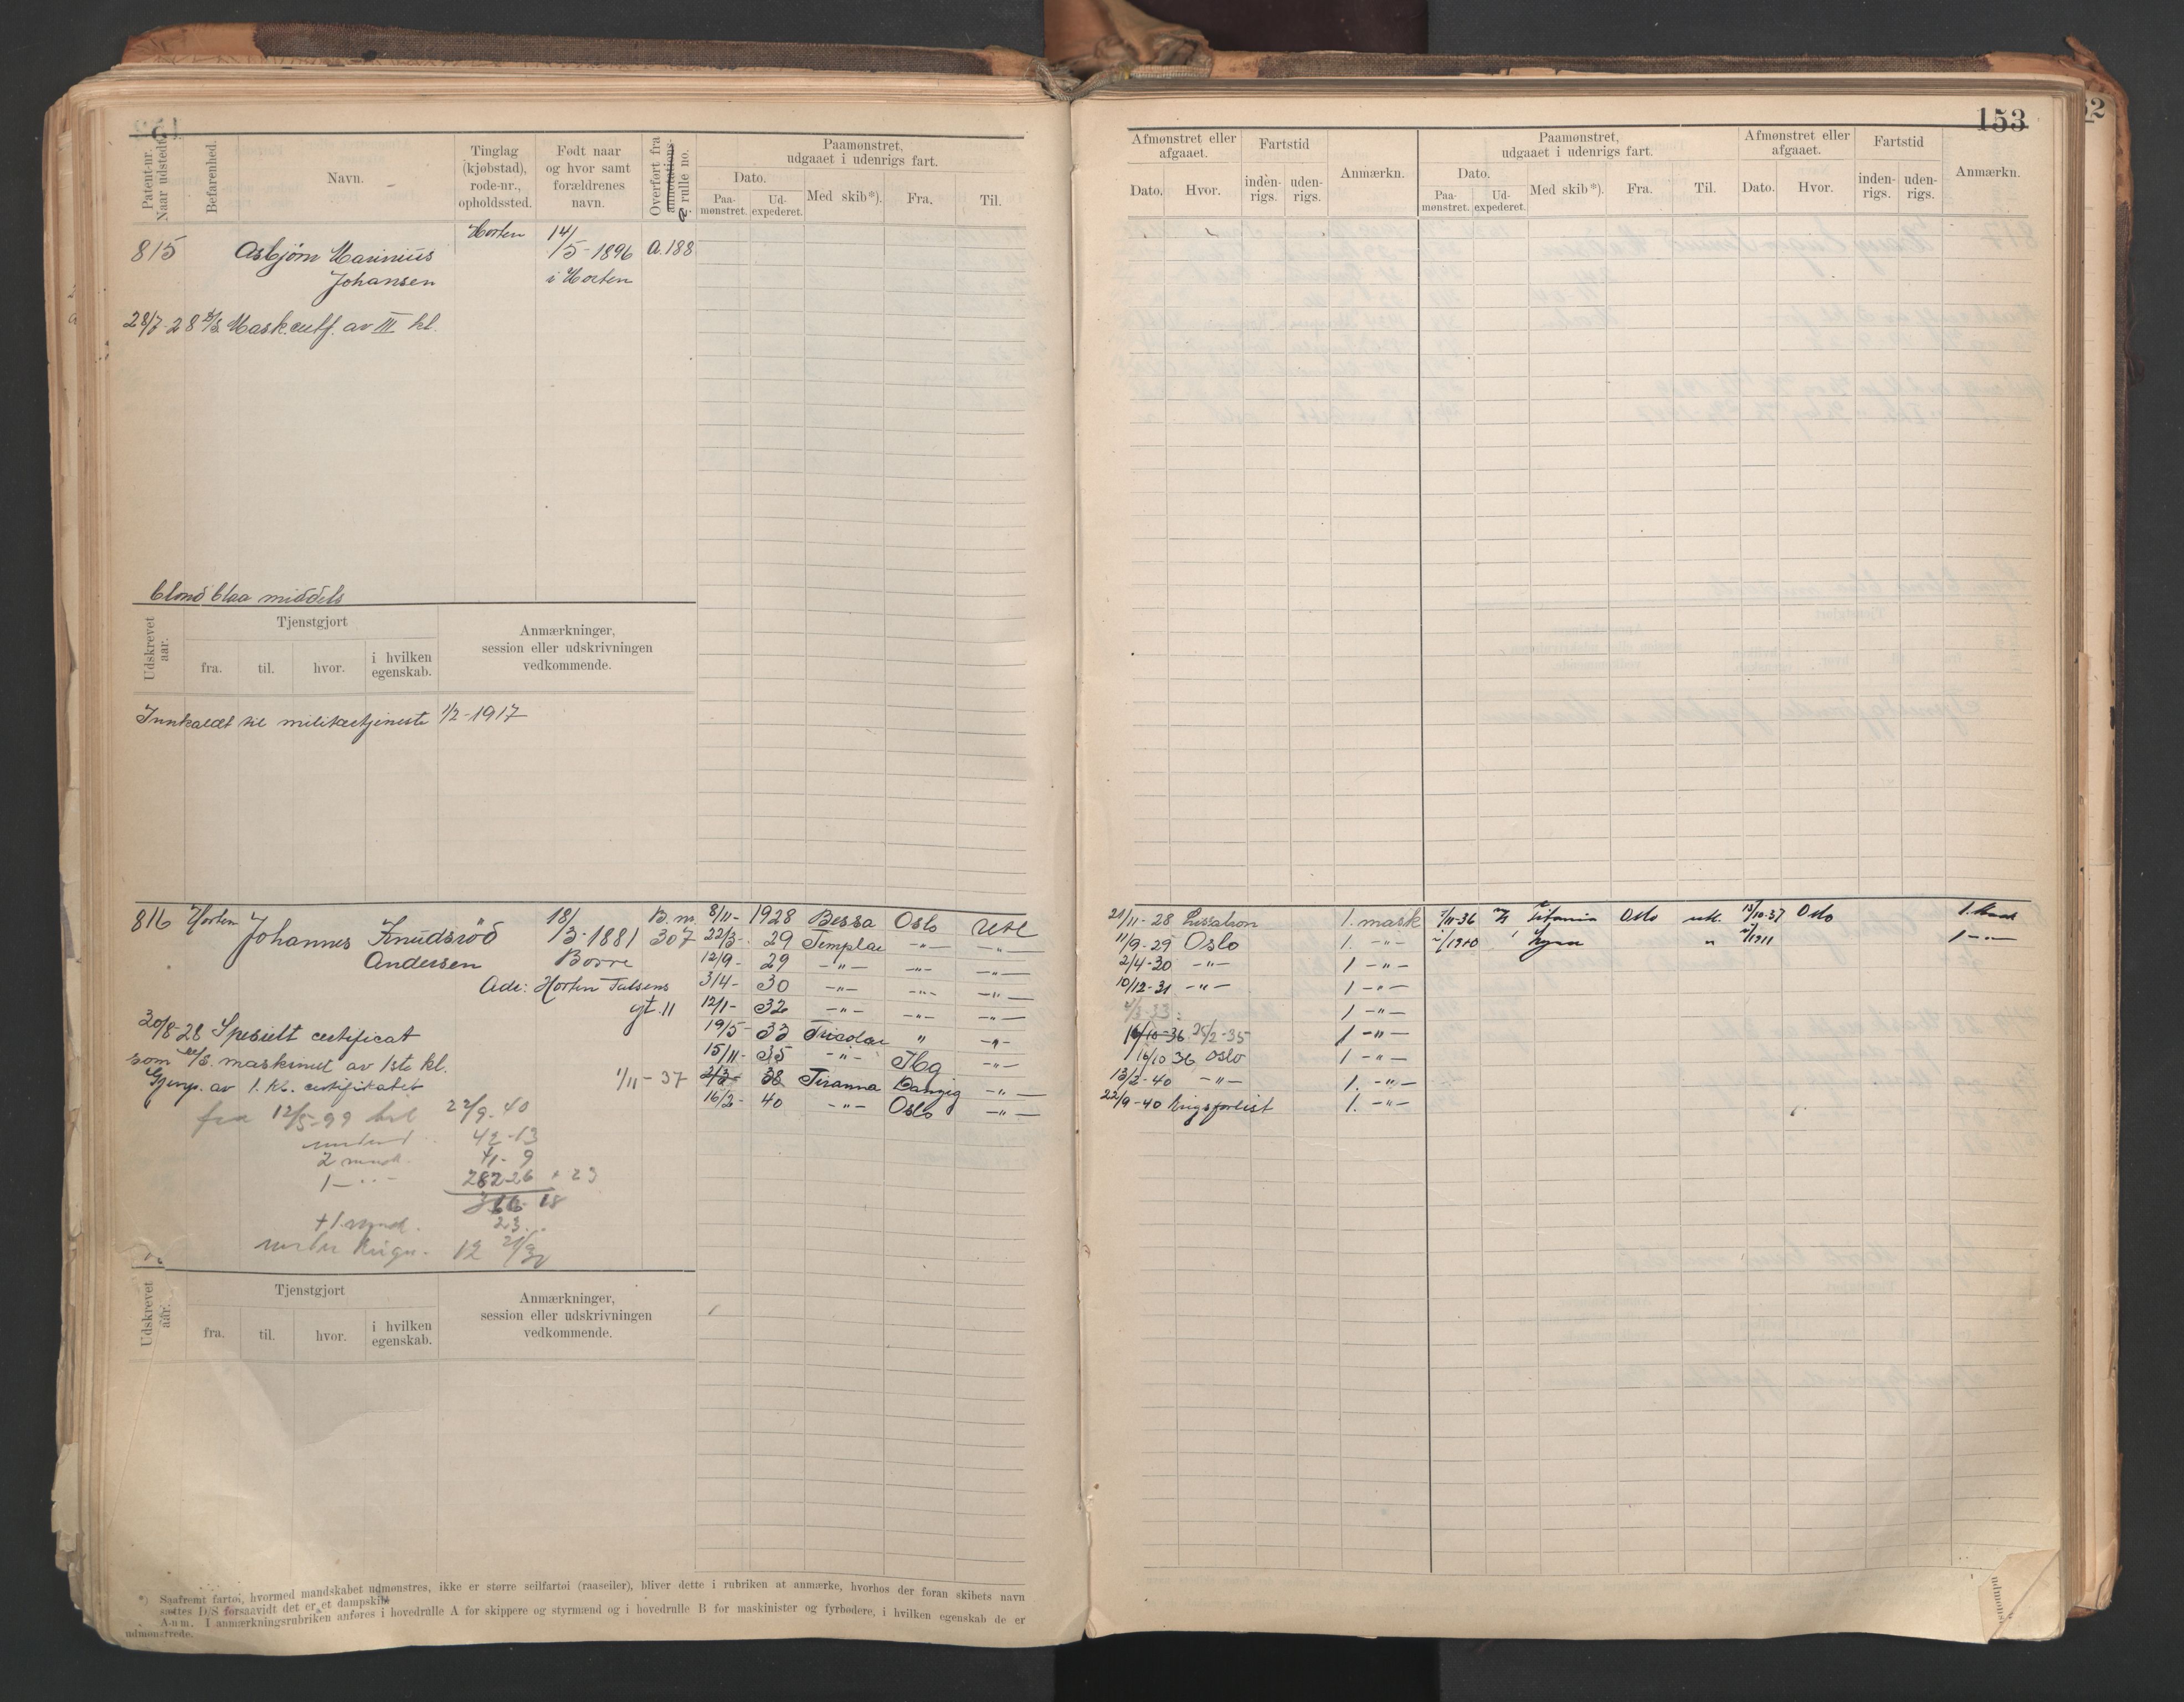 153
Patent-nr. Naar udstedt.
Befarenhed.
Navn.
Tinglag (kjøbstad), rode-nr., opholdssted.
Født naar og hvor samt forældrenes navn.
Overført fra annotations- rulle no.
Paamønstret, udgaaet i udenrigs fart.
Dato.
Paa- mønstret.
Ud- expederet.
Med skib*).
Fra.
Til.
Afmønstret eller afgaaet.
Dato.
Hvor.
Fartstid
inden- rigs.
uden- rigs.
Anmærkn.
Paamønstret, udgaaet i udenrigs fart.
Dato.
Paa- mønstret.
Ud- expederet.
Med skib*).
Fra.
Til.
Afmønstret eller afgaaet.
Dato.
Hvor.
Fartstid
inden- rigs.
uden- rigs.
Anmærkn.
Horten 14/
815 Asbjørn Marinius /5-1896 A.188
Johansen i Horten
28/7-28 Mask.certf. av III kl.
blond blaa middels
Udskrevet aar.
Tjenstgjort
fra. til. hvor. i hvilken egenskab.
Anmærkninger, session eller udskrivningen vedkommende.
Innkaldt til militærtjeneste 1/2-1917
816 Horten Johannes Knudsrød 18/ B.m. 8/11- 1928 Bessa Oslo Utl 21/11-28 1. mask 7/11-36 Titania Oslo utl. 13/10-37 Oslo 1. Mask
/3-1881 307 22/3- 29 Templar -"- -"- 11/9-29 Oslo 1. -"-
Andersen Borre 12/9- 29 -"- -"- -"- 2/4-30 -"- 1 -"-
Adr: Horten 3/4- 30 -"- -"- -"- 10/12-31 -"- 1 -"-
gt. 11 12/1- 32 -"- -"- -"- 1 -"-
20/8-28 Spesielt certificat 19/5- 33 Tricolor " -"- 16/10-36 25/2-35 1 -"-
som maskinist av 1ste kl. 15/11- 35 -"- Tbg -"- 16/10 36 Oslo 1 -"-
Gjenp. av 1. kl. certifikatet 1/11-37 2/3- 38 Tiranna Danzig -"- 13/2-40 -"- 1. -"-
16/2- 40 -"- Oslo -"- 22/9-40 Krigsforlist 1. -"-
fra 12/5-99 22/9-40
42-13
2 mnd. 9
1 -"- 282-26 + 23
18
+1 mnd. 23
12
Udskrevet aar.
Tjenstgjort
fra. til. hvor. i hvilken egenskab.
Anmærkninger, session eller udskrivningen vedkommende.
*) Saafremt fartøi, hvormed mandskabet udmønstres, ikke er større seilfartøi (raaseiler), bliver dette i rubriken at anmærke, hvorhos der foran skibets navn
sættes D/S forsaavidt det er et dampskib.
Anm. I anmærkningsrubriken anføres i hovedrulle A for skippere og styrmænd og i hovedrulle B for maskinister og fyrbødere, i hvilken egenskab de er
udmønstrede.